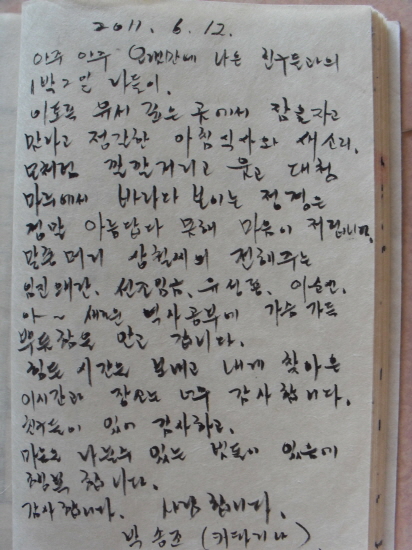 2011. 6. 12.
아주 아주 오랜만에 나온 친구들과의
1박2일 나들이.
이토록 유서 깊은 곳에서 잠을자고
맛나고 정갈한 아침식사와 새소리,
모처럼 깔깔거리고 웃고 대청
마루에서 바라다 보이는 정경은
정말 아름답다 못해 마음이 저립니다.
말씀 전해주는
임진왜란, 선조임금, 유성룡, 이순신.
아~ 새로운 역사공부에 가슴 가득
뿌듯함을 안고 갑니다.
힘든 시간을 보내고 내게 찾아온
이시간과 장소는 너무 감사합니다.
친구들이 있어 감사하고,
마음을 나눌수 있는 벗들이 있음에
행복 합니다.
감사합니다. 사랑합니다.
박송조